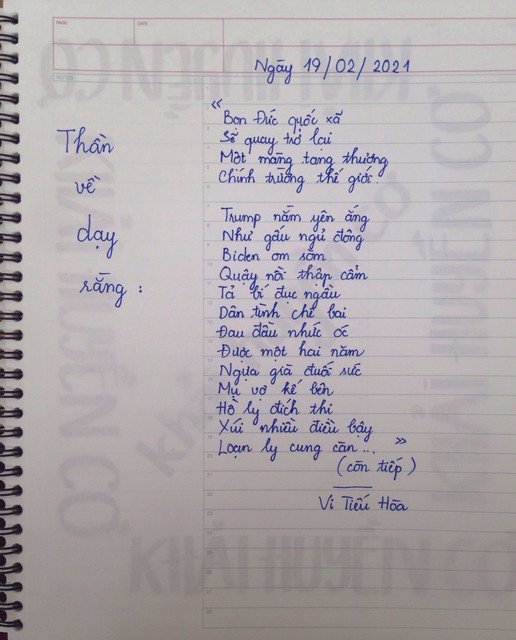 PAGE
DATE
NOTES
Ngày 19/02/2021
Thần
về
dạy
rằng :
“
Bọn Đức quốc xã
Sẽ quay trở lại
Một màng tang thương
Chính trường thế giới.
Trump nằm yên ắng
Như gấu ngủ đông
Biden om sòm
Quậy nồi thập cẩm
Tả bí đục ngầu
Dân tình chê bai
Đau đầu nhức óc
Được một hai năm
Ngựa già đuối sức
Mụ vợ kế bên
Hồ ly đích thị
Xúi nhiều điều bậy
Loạn ly cung cấn... ”
(còn tiếp)
Vi Tiếu Hòa
KHẢI HUYỀN CƠ
KHẢI HUYỀN CƠ
KHẢI HUYỀN CƠ
KHẢI HUYỀN CƠ